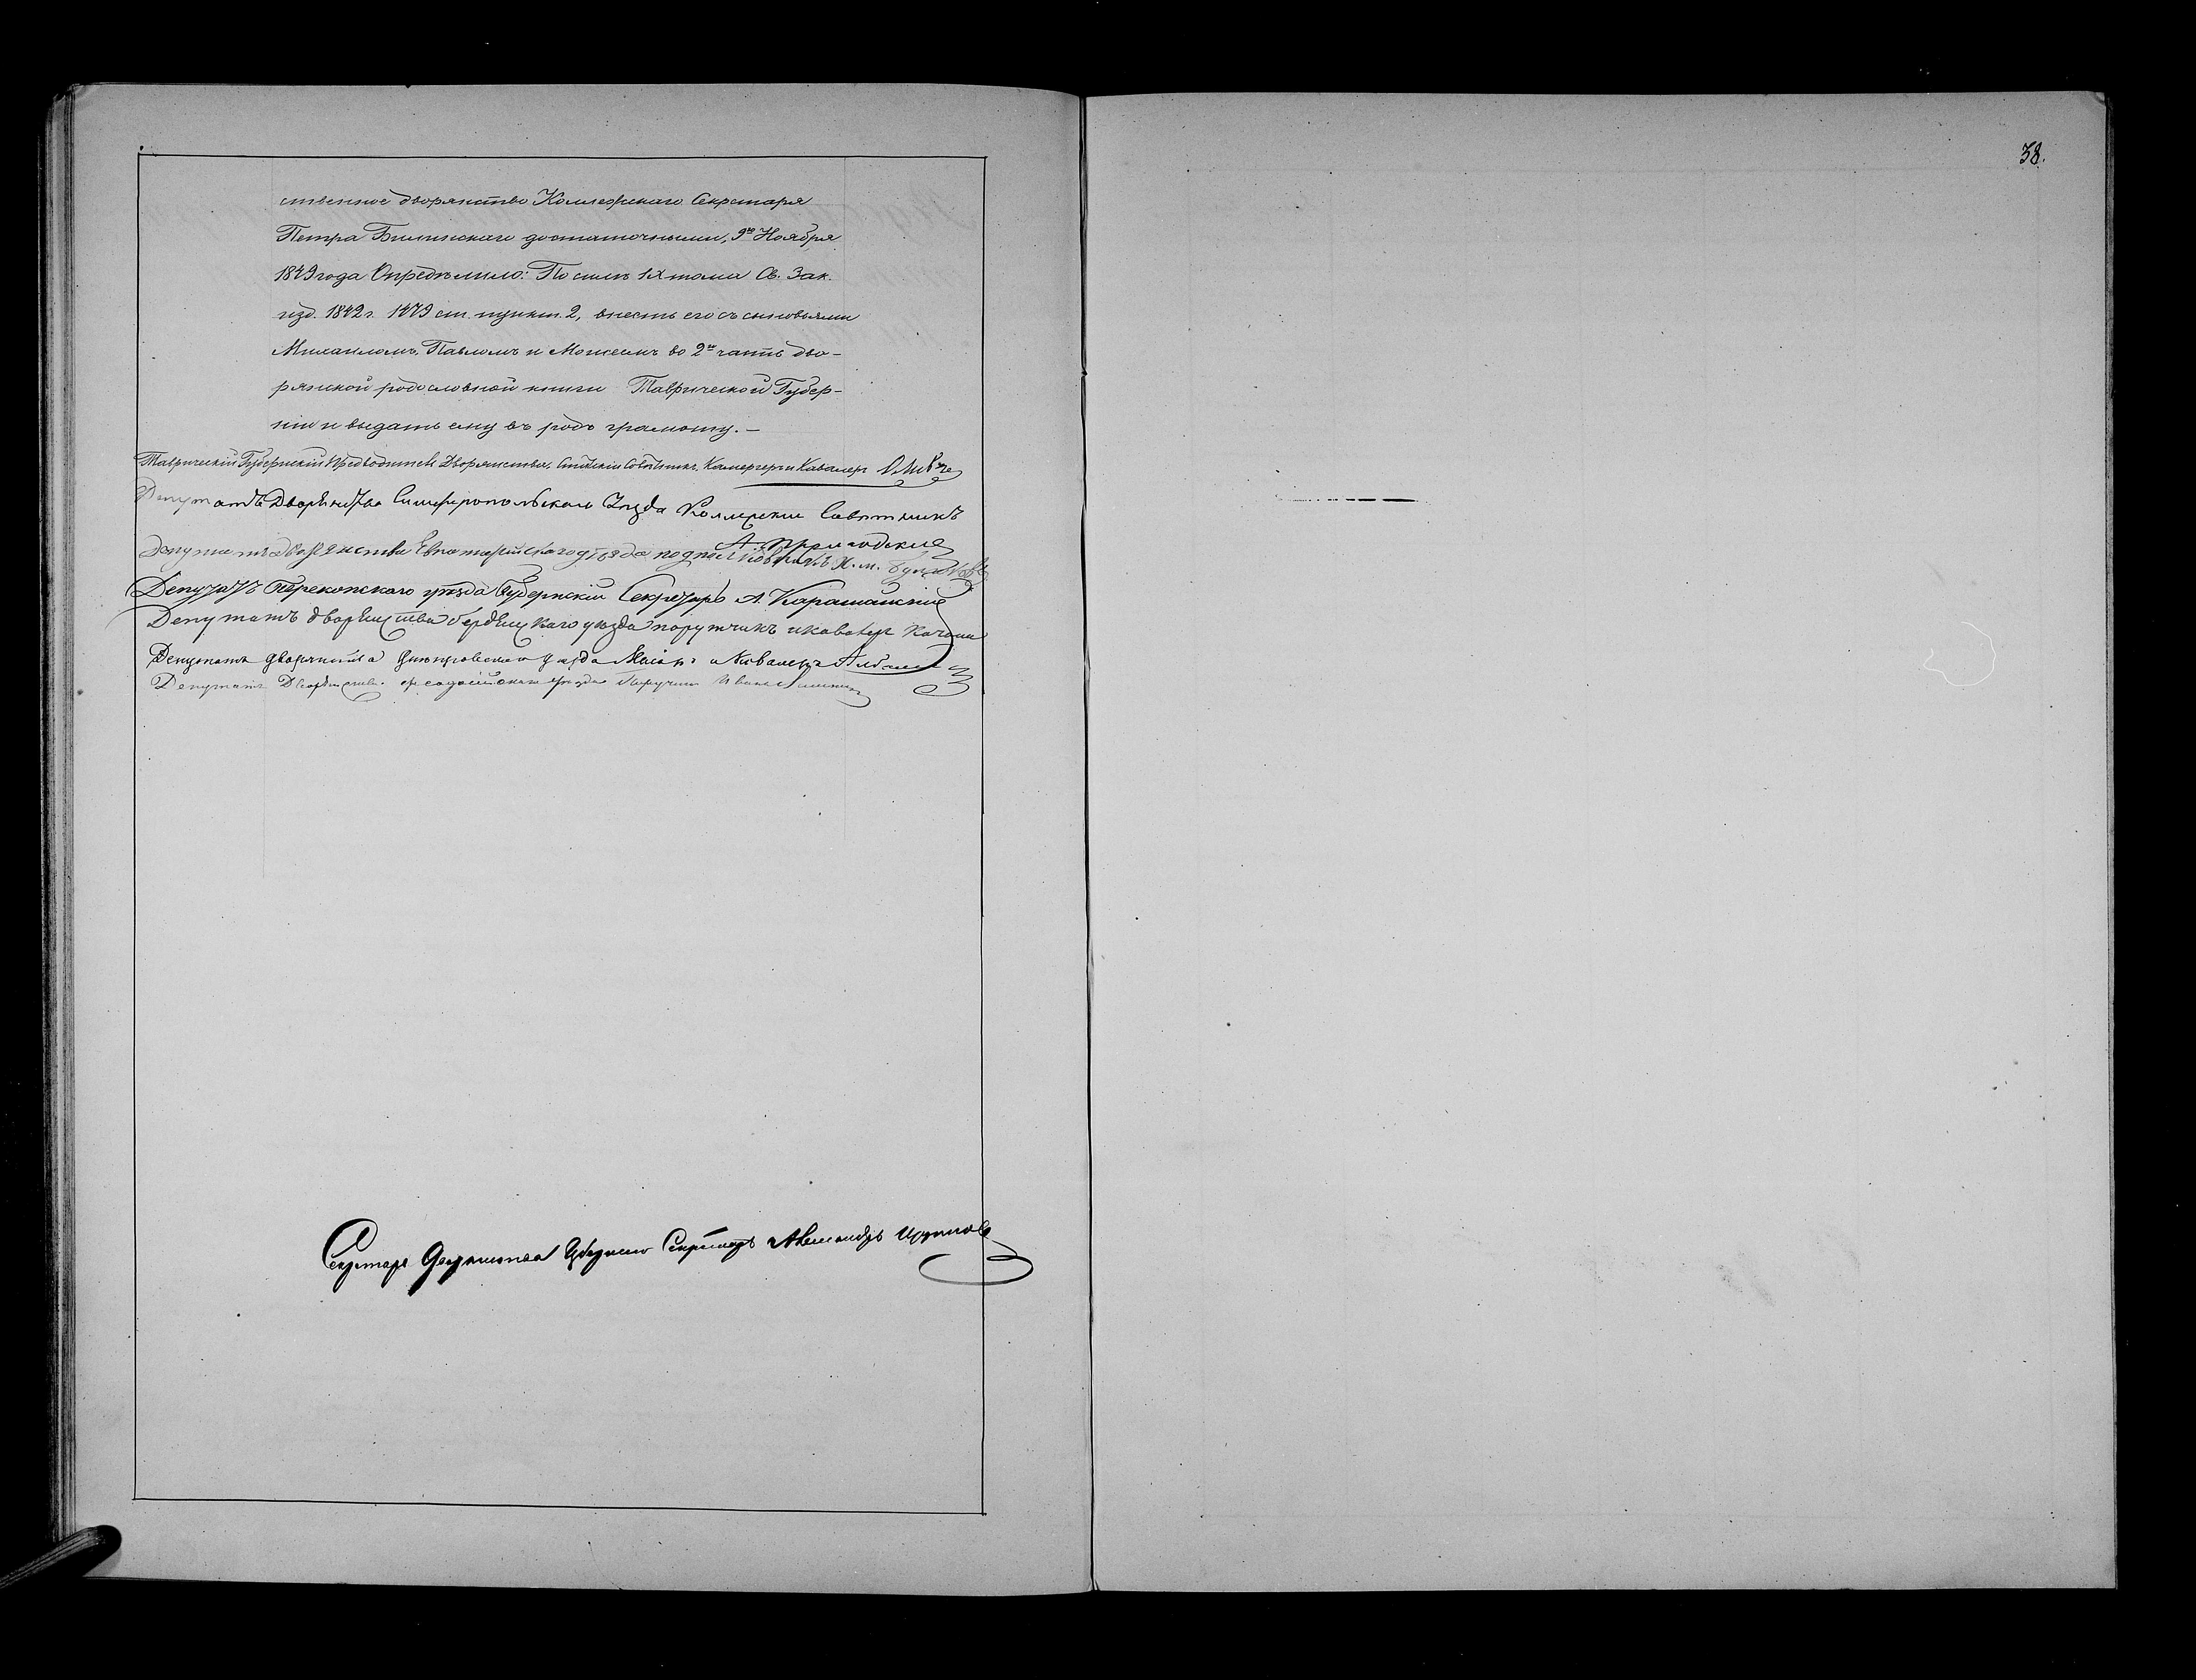 ственное дворянство Коллежскаго Секретаря
Петра Билинскаго достаточными, 9го Ноября
1849 года Опредѣлило: По силѣ IX тома Св. Зак.
изд. 1842 г. 1479 ст. пункт. 2, внесть его съ сыновьями
Михаиломъ, Павломъ и Моисеемъ во 2ю часть дво-
рянской родословной книги Таврической Губер-
ніи и выдать ему въ родъ грамоту. —
Таврическій Губернскій Предводитель Дворянства, Статскій Совѣтникъ, Камергеръ и Кавалеръ
Депутатъ Дворянства Симферопольскаго Уѣзда Коллежскій Совѣтникъ
Депутатъ дворянства Евпаторійскаго уѣзда подполковникъ
Депутатъ Перекопскаго уѣзда Губернскій Секретарь А. Карашайскій
Депутатъ дворянства бердянскаго уѣзда поручикъ и кавалеръ Качони
Депутатъ дворянства Днѣпровскаго уѣзда Маіоръ и Кавалеръ
Депутатъ Дворянства Феодосійскаго Уѣзда Поручикъ Иванъ
Секретарь Дворянства Губернскій Секретарь Александръ
38.